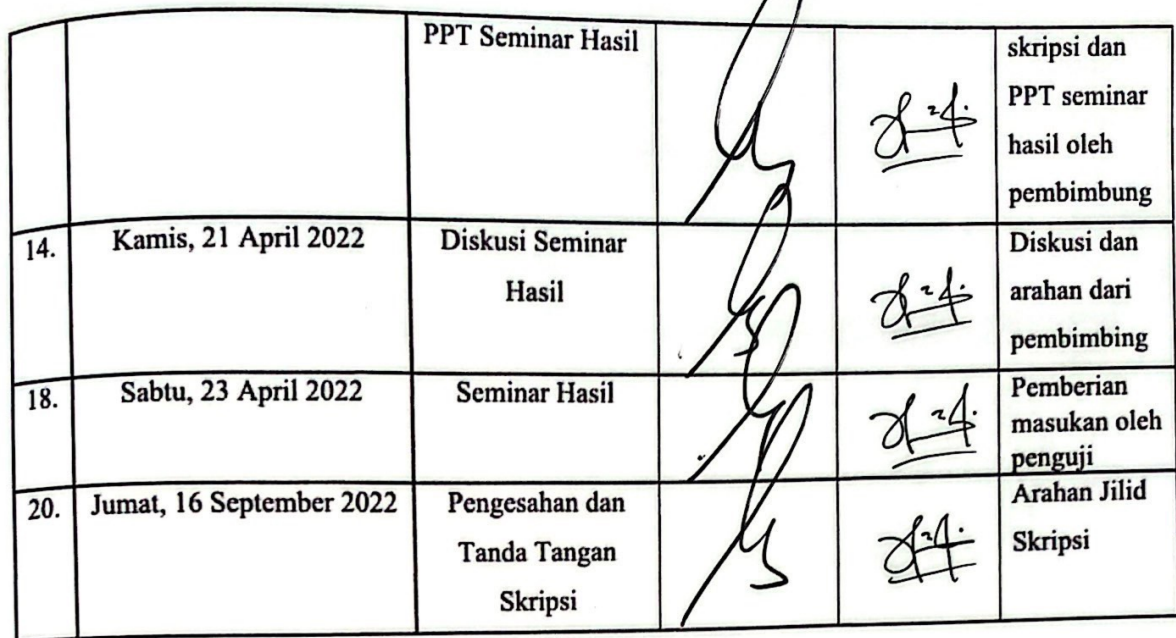 PPT Seminar Hasil
skripsi dan
PPT seminar
hasil oleh
pembimbung
14.
Kamis, 21 April 2022
Diskusi Seminar
Hasil
Diskusi dan
arahan dari
pembimbing
18.
Sabtu, 23 April 2022
Seminar Hasil
Pemberian
masukan oleh
penguji
20.
Jumat, 16 September 2022
Pengesahan dan
Tanda Tangan
Skripsi
Arahan Jilid
Skripsi